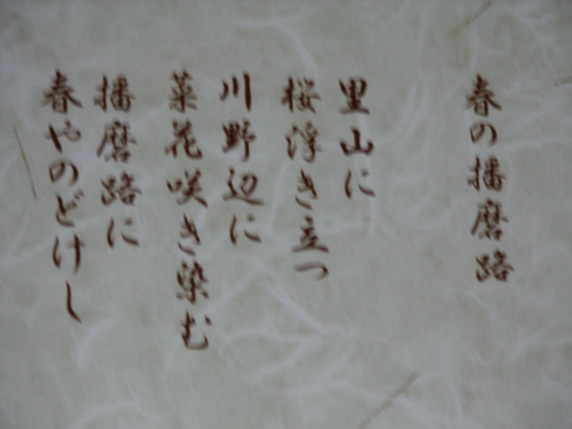 春の播磨路
里山に
桜浮き立つ
川野辺に
菜花咲き染む
播磨路に
春やのどけし